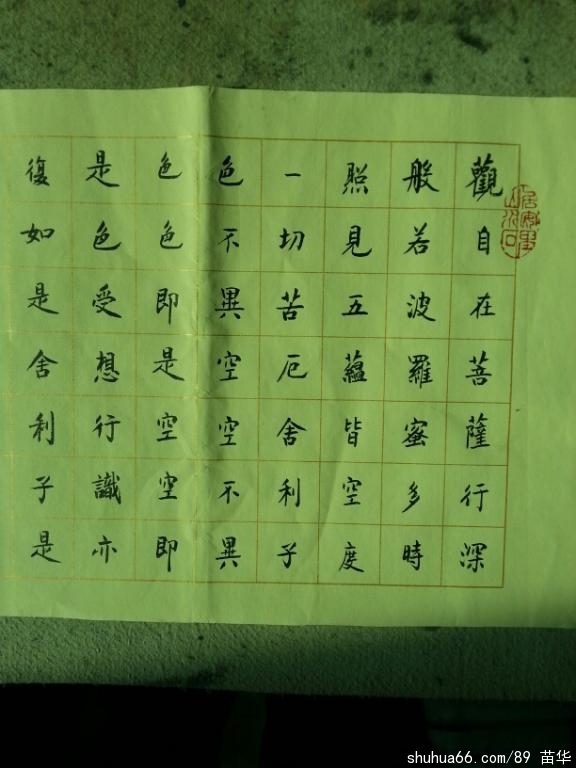 觀自在菩薩行深
般若波羅蜜多時
照見五蘊皆空度
一切苦厄舍利子
色不異空空不異
色色即是空空即
是色受想行識亦
復如是舍利子是
shuhua66.com/89 苗华